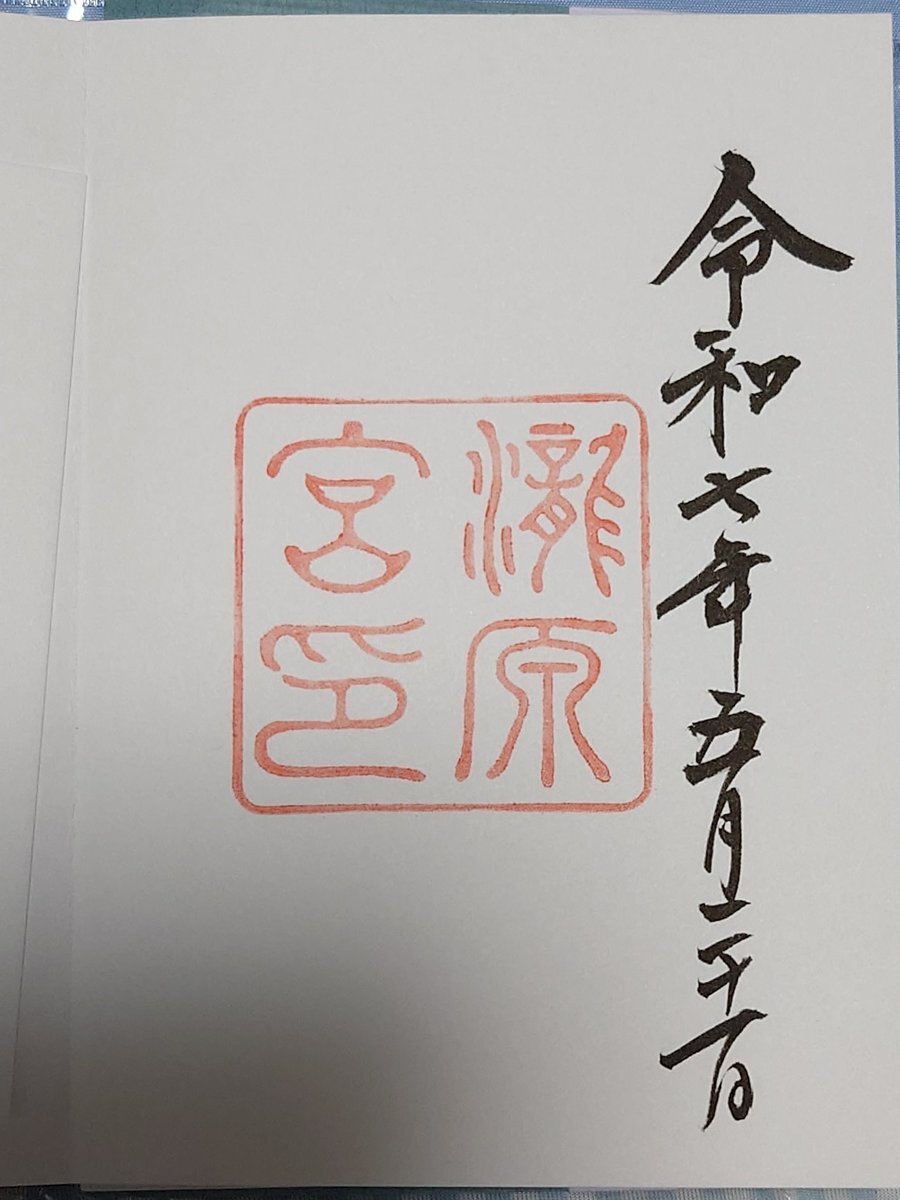 令和七年五月三十一日
瀧原
宮印